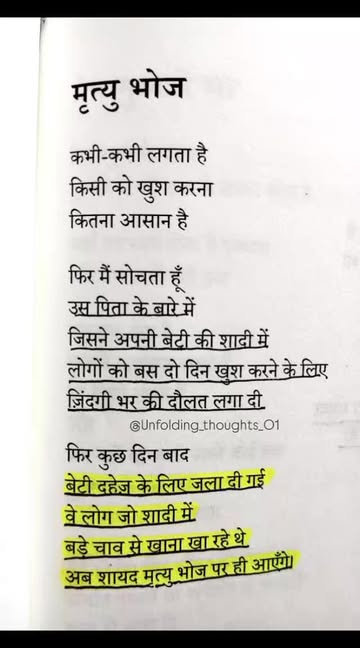 मृत्यु भोज
कभी-कभी लगता है
किसी को खुश करना
कितना आसान है
फिर मैं सोचता हूँ
उस पिता के बारे में
जिसने अपनी बेटी की शादी में
लोगों को बस दो दिन खुश करने के लिए
ज़िंदगी भर की दौलत लगा दी
@Unfolding_thoughts_01
फिर कुछ दिन बाद
बेटी दहेज़ के लिए जला दी गई
वे लोग जो शादी में
बड़े चाव से खाना खा रहे थे
अब शायद मृत्यु भोज पर ही आएँगे।